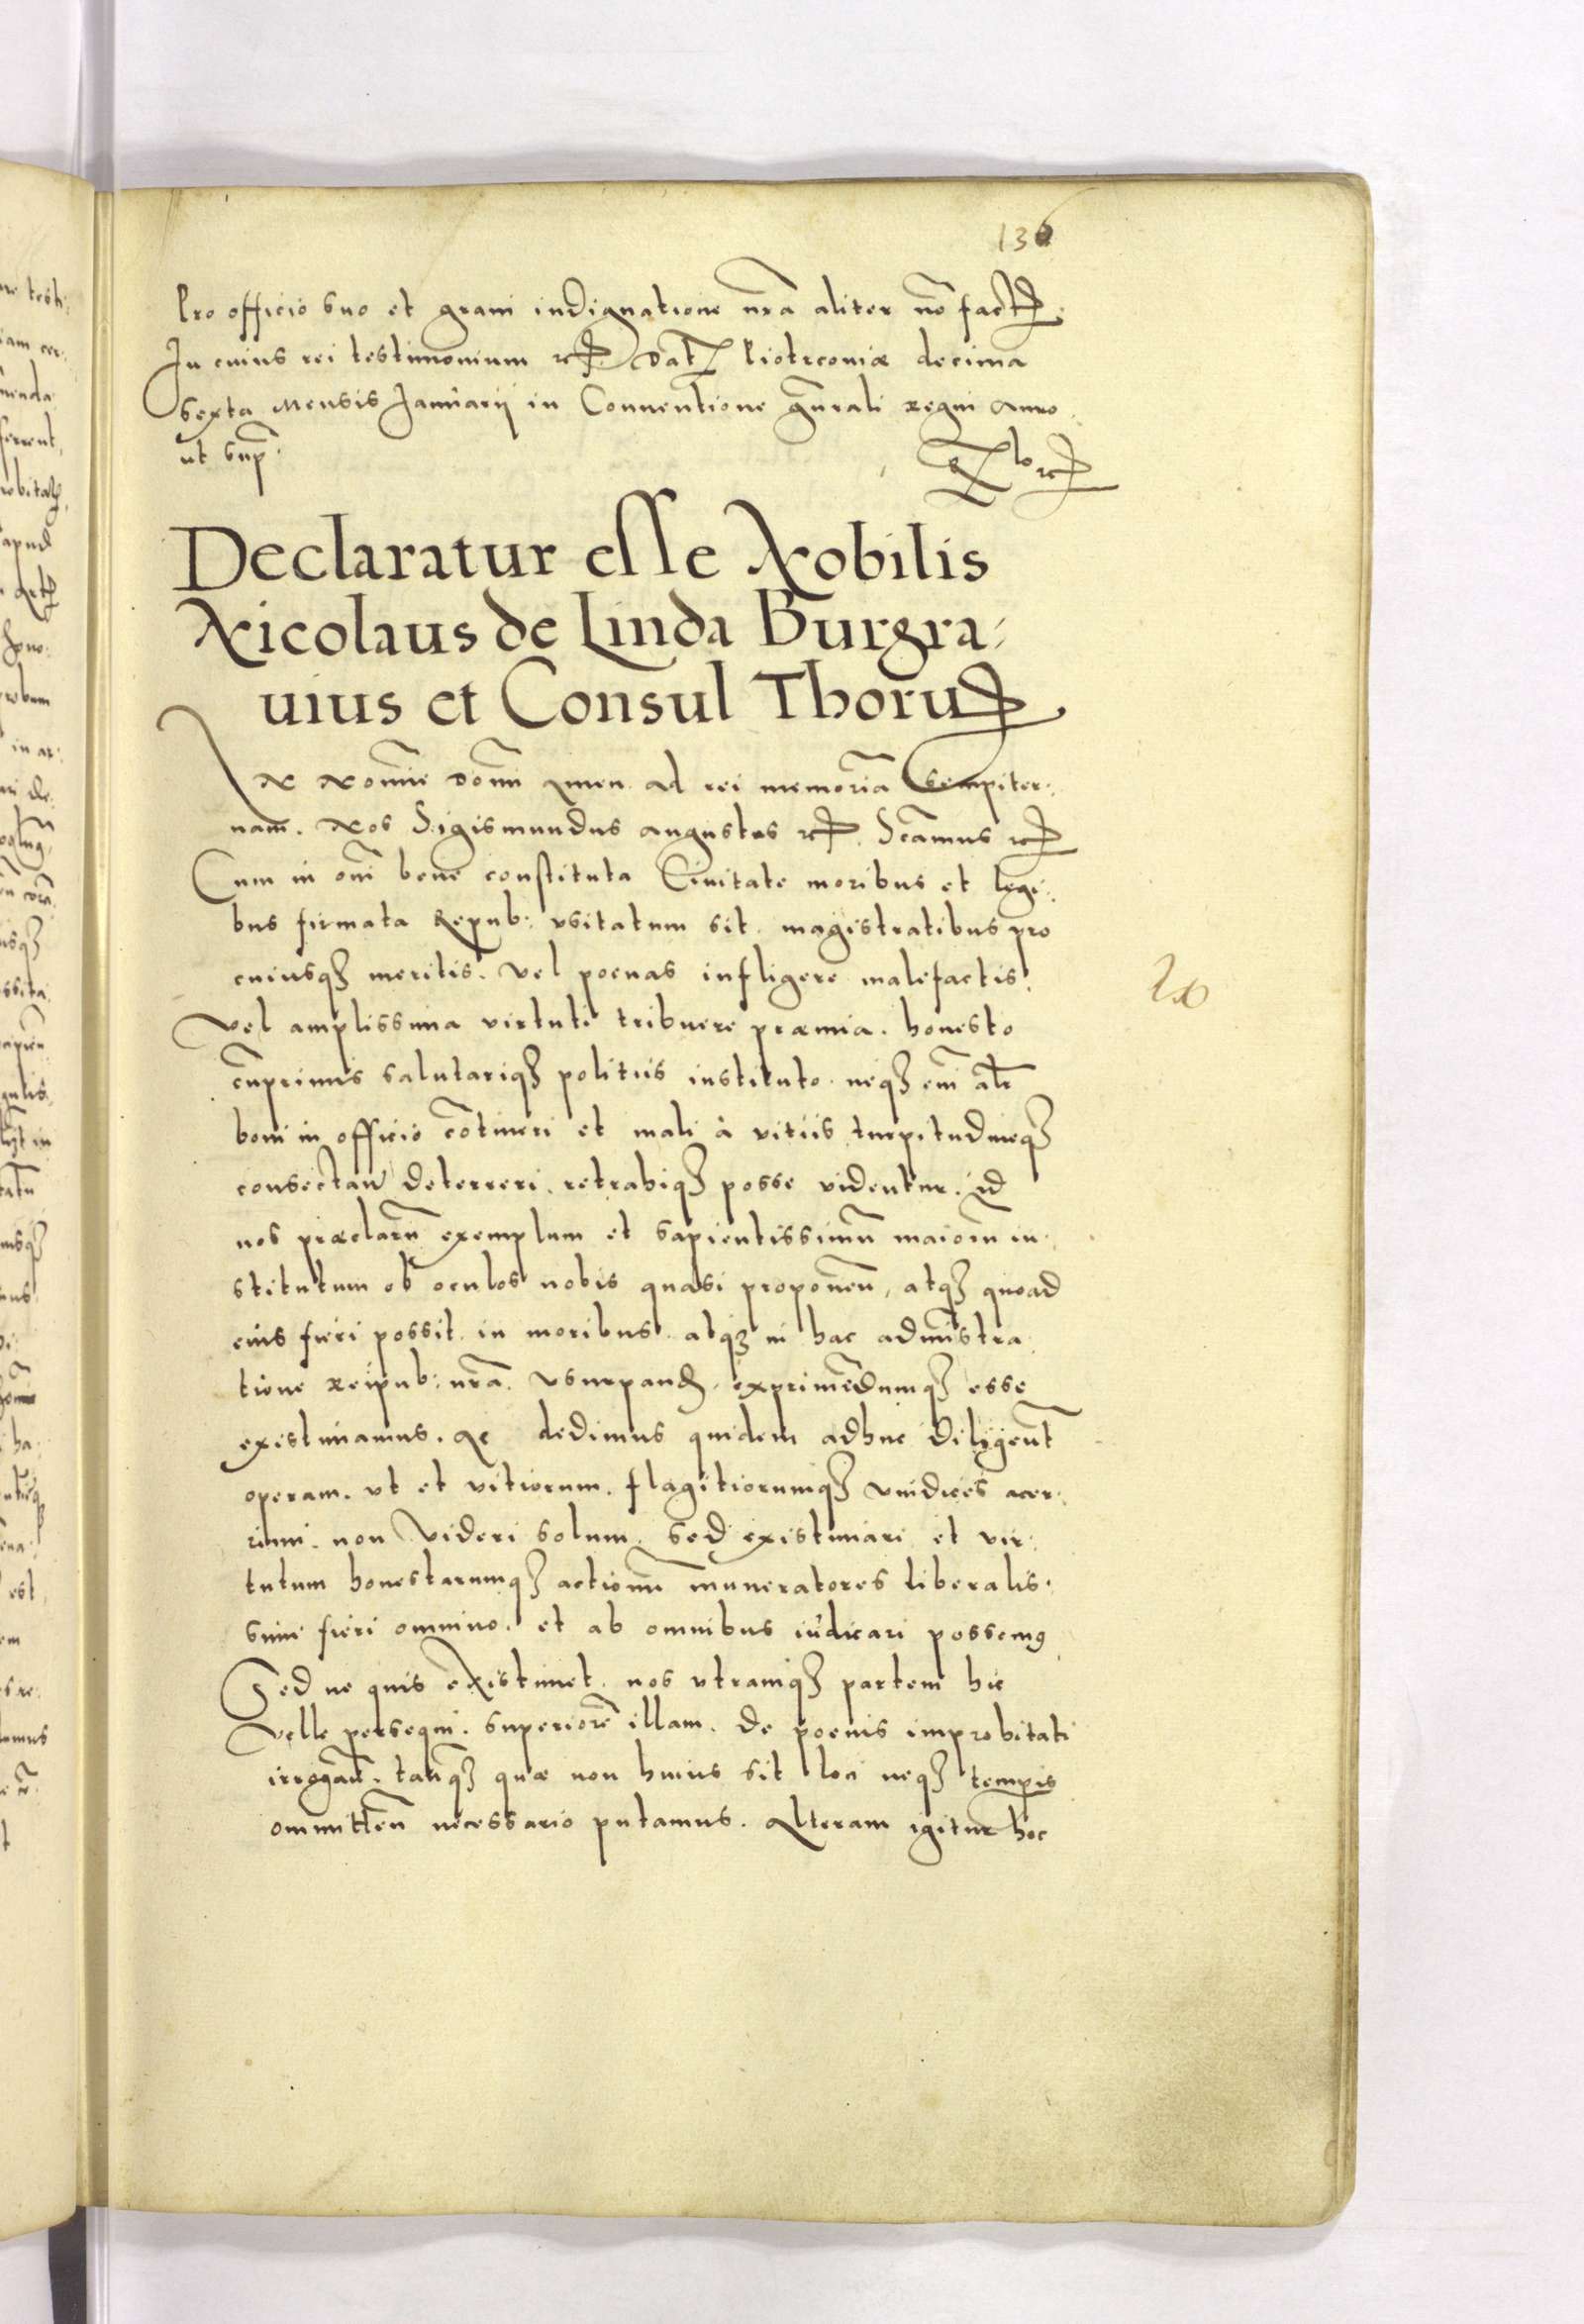 136
Pro officio suo et graui indignatione nrã aliter nõ fact
In cuius rei testimonium etc Dat Piotrcouiæ decima
sexta Mensis Januarij in Conuentione gñrali regni anno
ut sup
Declaratur esse Nobilis
Nicolaus de Linda Burgra
uius et Consul Thoruñ
IN Nomīe Domī amen ad rei memoriã sempiter
nam. Nos Sigismundus augustus etc. Scamus etc
Cum in omī bene constituta Ciuitate moribus et legi
bus firmata Repub: vsitatum sit magistratibus pro
cuiusq3 meritis. vel poenas infligere malefactis
vel amplissima virtuti tribuere præmia. honesto
cũprimis salutariq3 politiis instituto. neq3 em̃ alr̃
boni in officio cõtineri et mali à vitiis turpitudineq3
consectañ deterreri. retrahiq3 posse videntur. id
nos præclarũ exemplum et sapientissimũ maiorũ in
stitutum ob oculos nobis quasi proponeñ, atq3 quoad
eius fieri possit. in moribus. atq3 in hac admĩstra
tione Reipub: nrã. vsurpand. exprimẽdumq3 esse
existimamus. Ac dedimus quidem adhuc diligent̃
operam. vt et vitiorum. flagitiorumq3 vindices acer
rimi. non videri solum. sed existimari et vir
tutum honestarumq3 actionũ muneratores liberalis
simi fieri omnino. et ab omnibus iudicari possemꝰ
Sed ne quis existimet. nos vtramq3 partem hic
velle persequi. superiorẽ illam. de poenis improbitati
irrogañ. tanq3 quæ non huius sit loci neq3 temporis
ommitteñ necessario putamus. Alteram igitur hoc